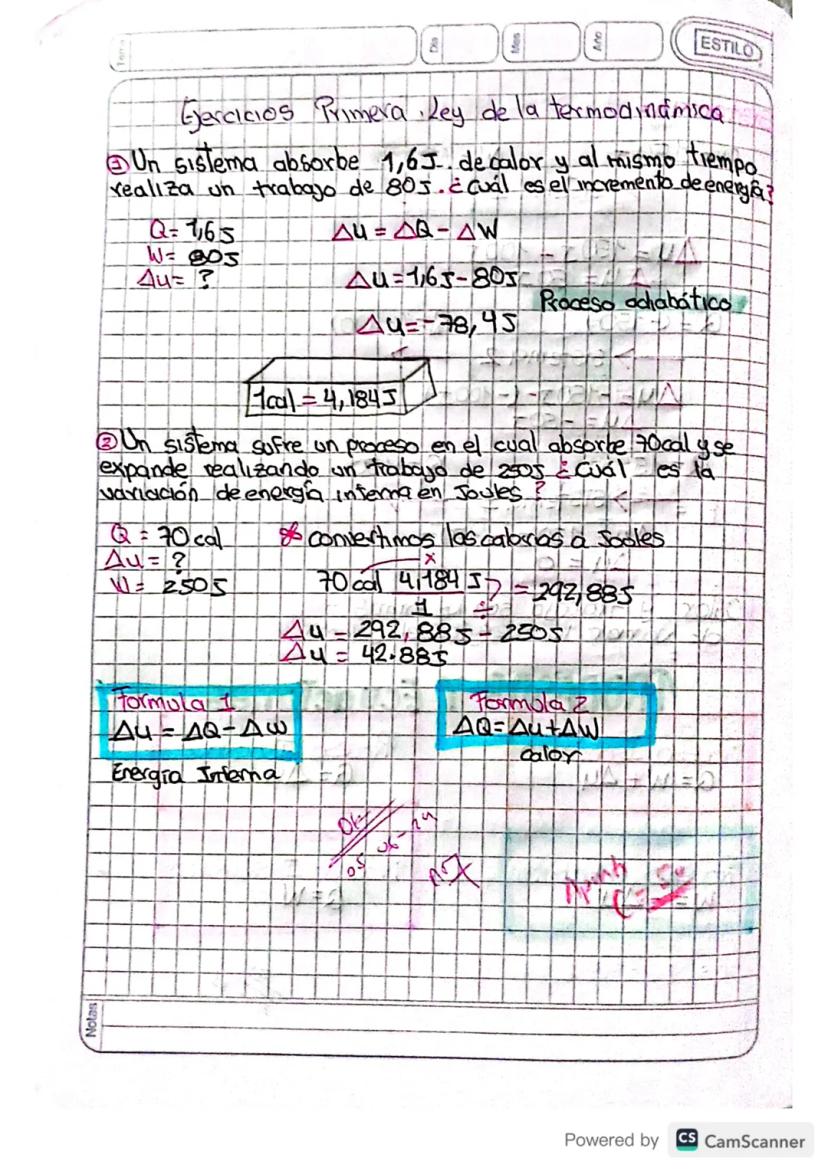 Tema
Día
Mes
Año
ESTILO
Ejercicios Primera Ley de la termodinámica
① Un sistema absorbe 1,6J. de calor y al mismo tiempo
realiza un trabajo de 80J. ¿cuál es el incremento de energía?
Q= 1,6J
ΔU = ΔQ - ΔW
W= 80J
Δu= ?
ΔU=1,6J-80J
Proceso adiabático
ΔU=-78,4J
1cal = 4,184J
② Un sistema sufre un proceso en el cual absorbe 70cal y se
expande realizando un trabajo de 250J ¿cuál es la
variación de energía interna en Joules?
Q = 70 cal
* convertimos las calorias a Joules
Δu = ?
W = 250J
x
70 cal 4,184 J = 292,88J
1 ÷
Δu = 292,88J - 250J
Δu = 42.88J
Formula 1
ΔU = ΔQ - ΔW
Energía Interna
Formula 2
ΔQ=Δu+ΔW
calor
05 06-24
Notas
Powered by CS CamScanner